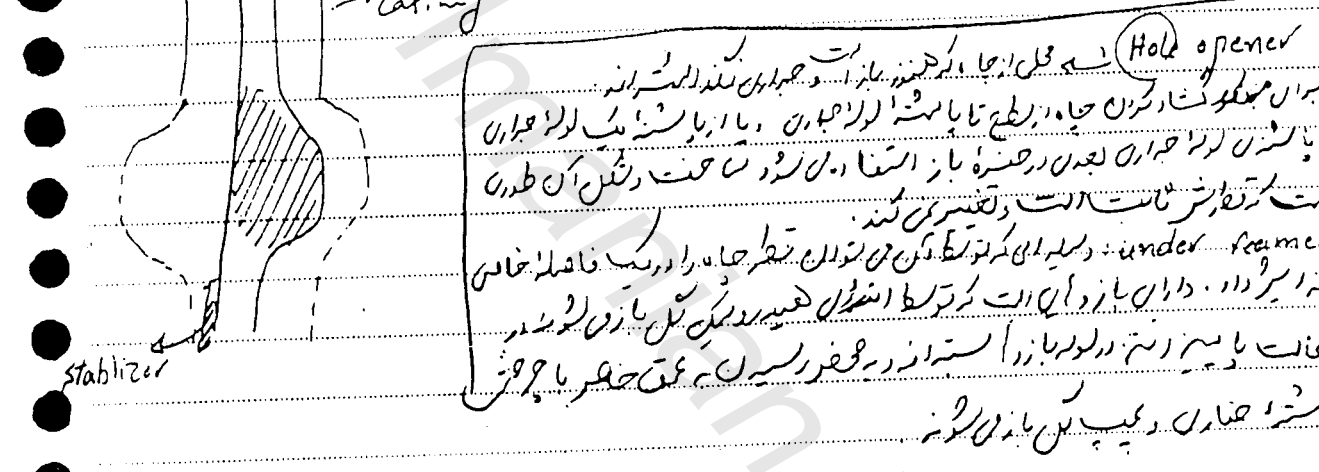 casing
Hole opener به محلی از چاه که هنوز باز است و جداری نگذاشته اند.
برای گشاد کردن چاه از سطح تا پاشنه لوله جداری و یا از پاشنه یک لوله جداری
تا پاشنه لوله جداری بعدی در حفره باز استفاده می شود ساخت و شکل آن طوری
است که قطرش ثابت است و تغییر نمی کند.
under reamer: وسیله ای که توسط آن می توان قطر چاه را در یک فاصله خاص
داد. دارای بازوهای است که توسط انرژی هیدرولیکی گل باز می شوند در
حالت پایین رفتن در لوله بازوها بسته اند و به محض رسیدن به عمق خاص با چرخش
رشته حفاری و پمپ گل باز می شوند.
stablizer
Imanian